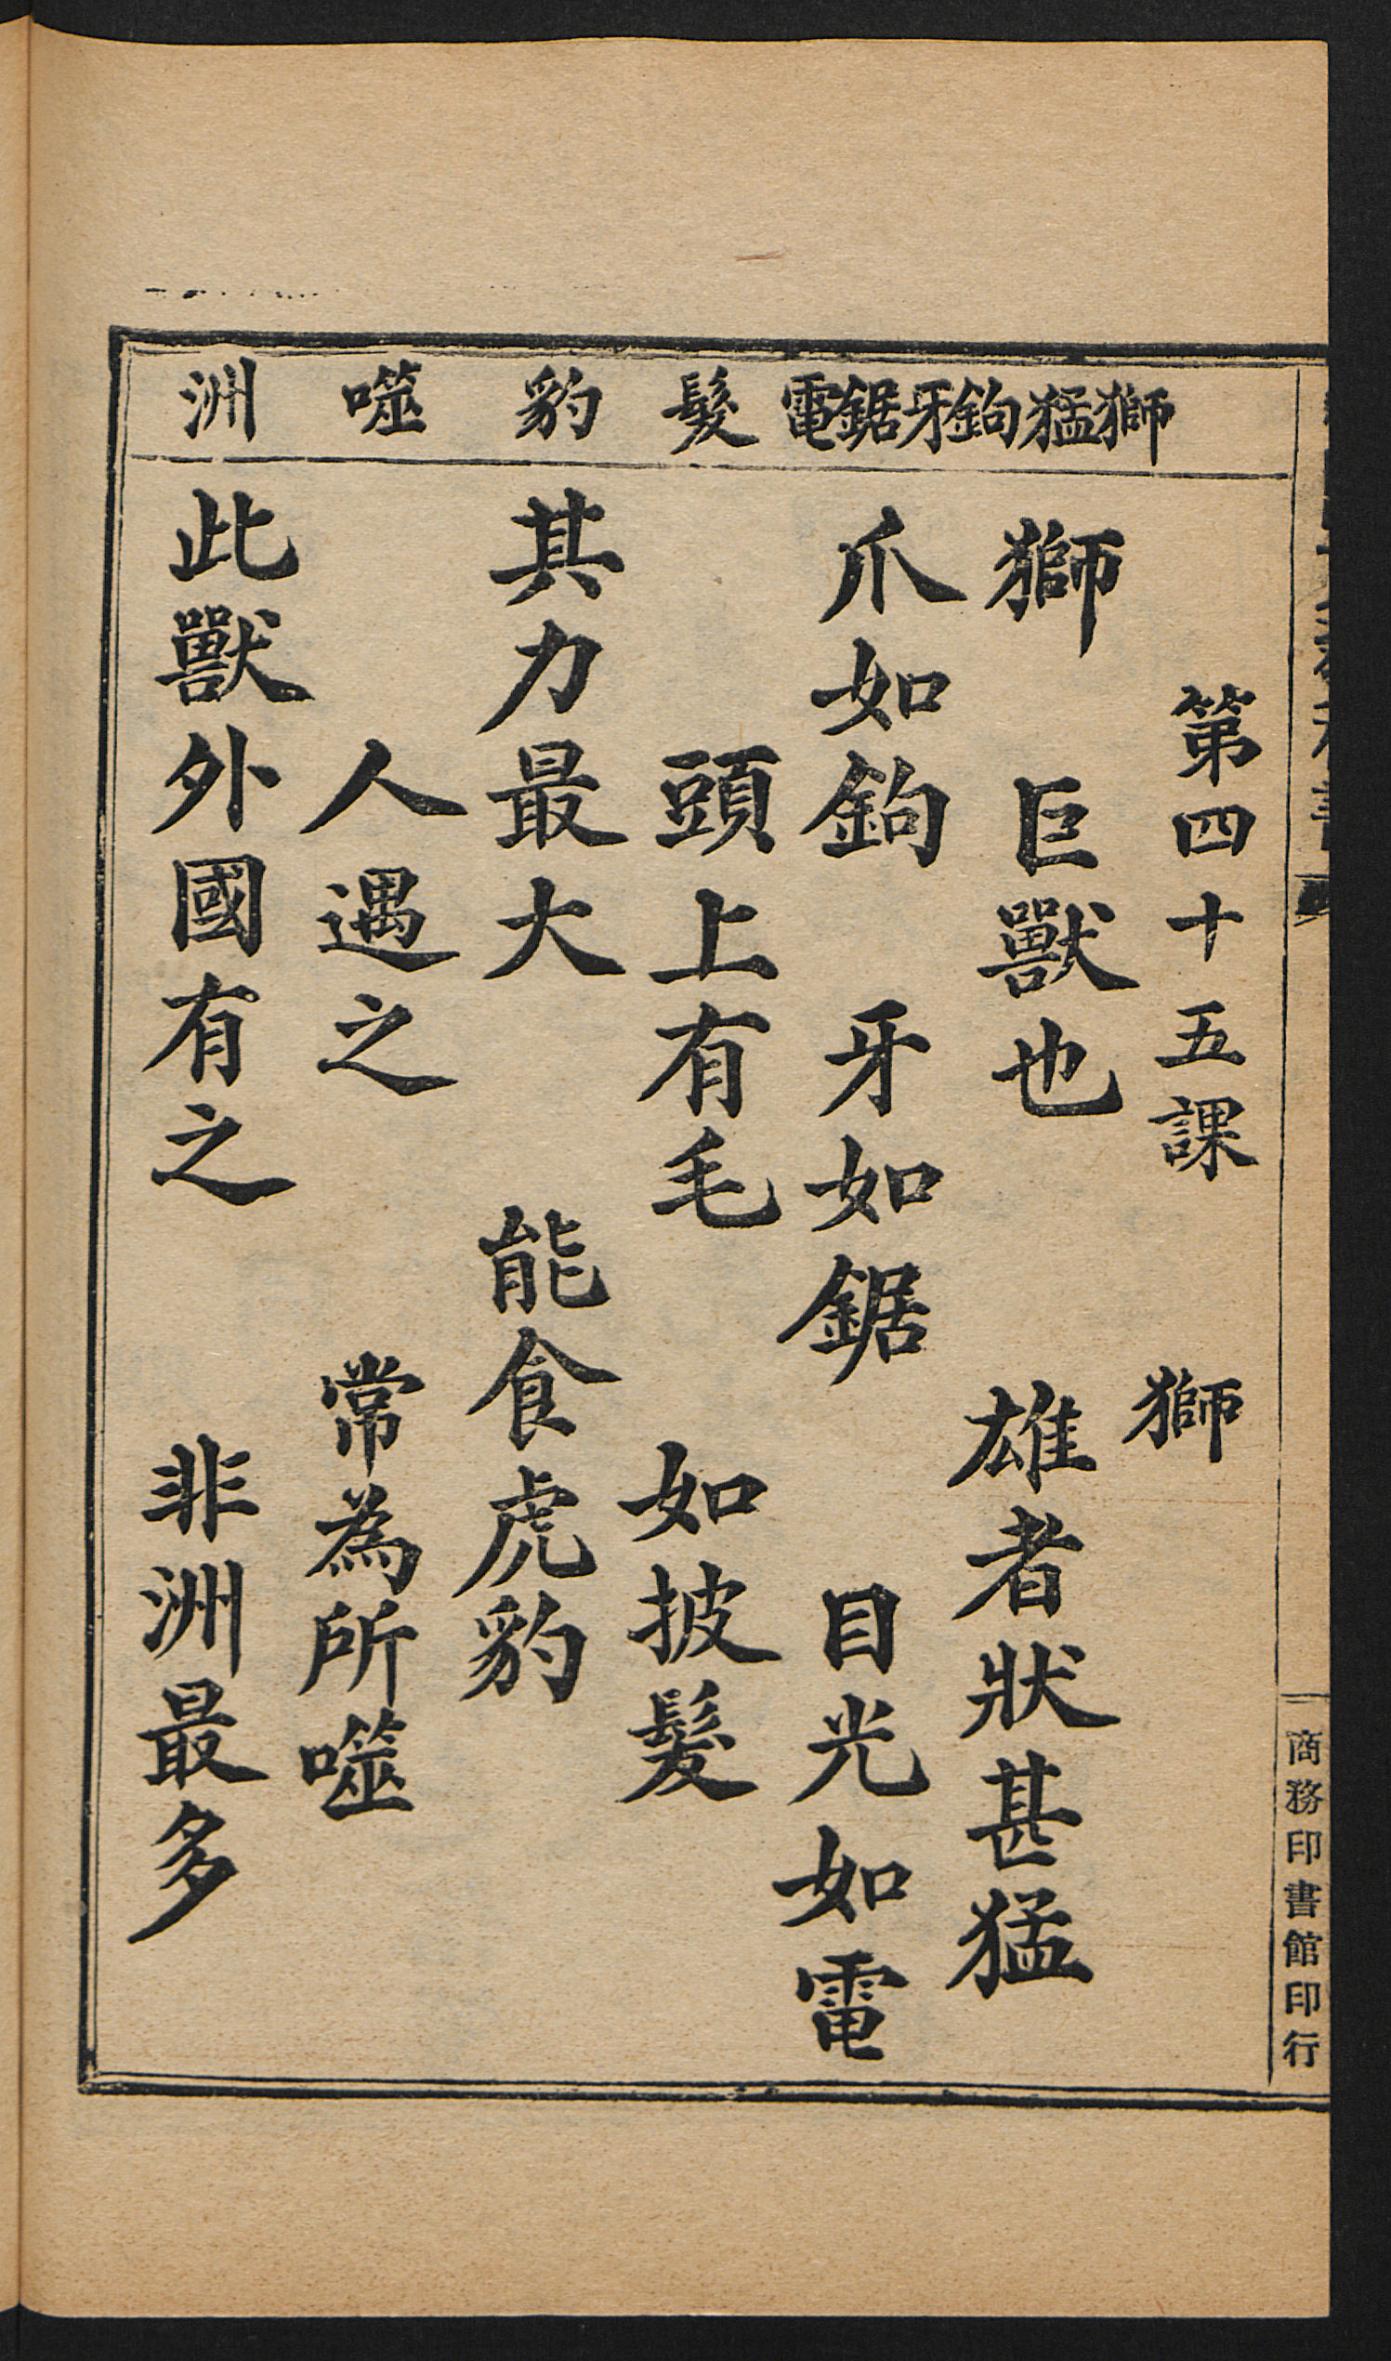 第四十五課 獅
獅 巨獸也 雄者狀甚猛
爪如鉤 牙如鋸 目光如電
頭上有毛 如披髮
其力最大 能食虎豹
人遇之 常為所噬
此獸外國有之 非洲最多
獅猛鉤牙鋸電 髮 豹 噬 洲
商務印書館印行